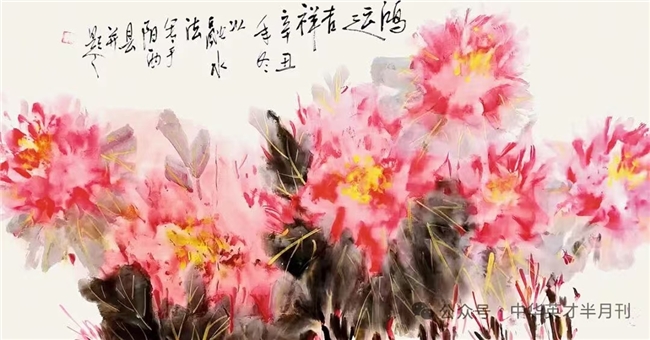 鸿运吉祥
辛丑
年冬
以
水
法
写于
阳西
县并
题
公众号·中华英才半月刊